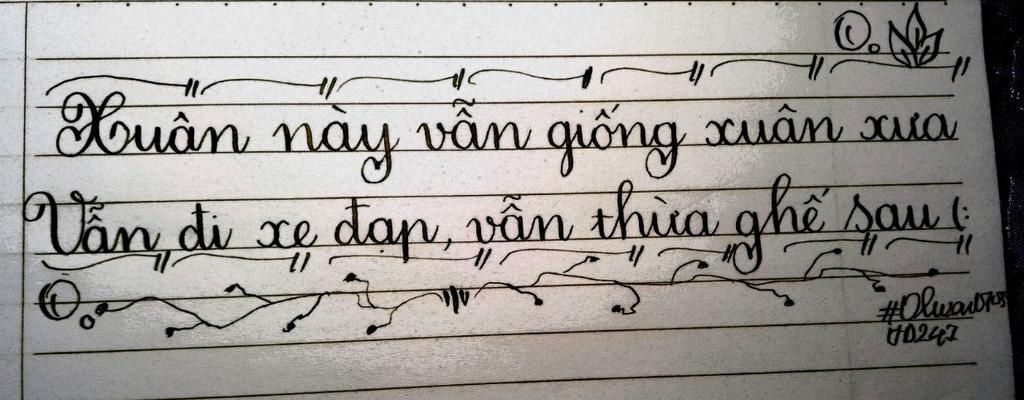 O.
Xuân này vẫn giống xuân xưa
Vẫn đi xe đạp, vẫn thừa ghế sau (:
O.